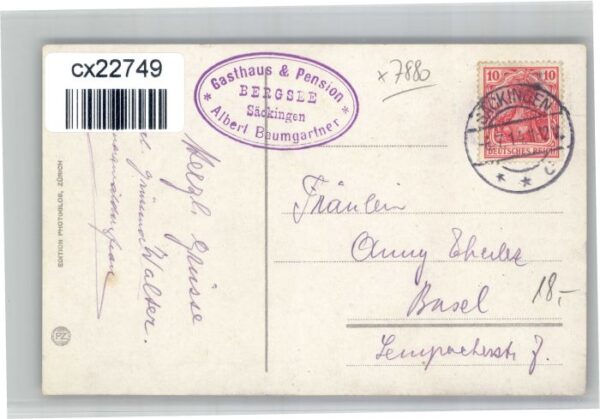 cx22749
Gasthaus & Pension
BERGSLE
Säckingen
* Albert Baumgartner *
x7880
10 10
DEUTSCHES REICH
SÄCKINGEN
* * c
Herzl. Grüsse
Walter.
Fräulein
Anny
Basel
Sempacherstr. 7.
18.-
EDITION PHOTOGLOB, ZÜRICH
PZ